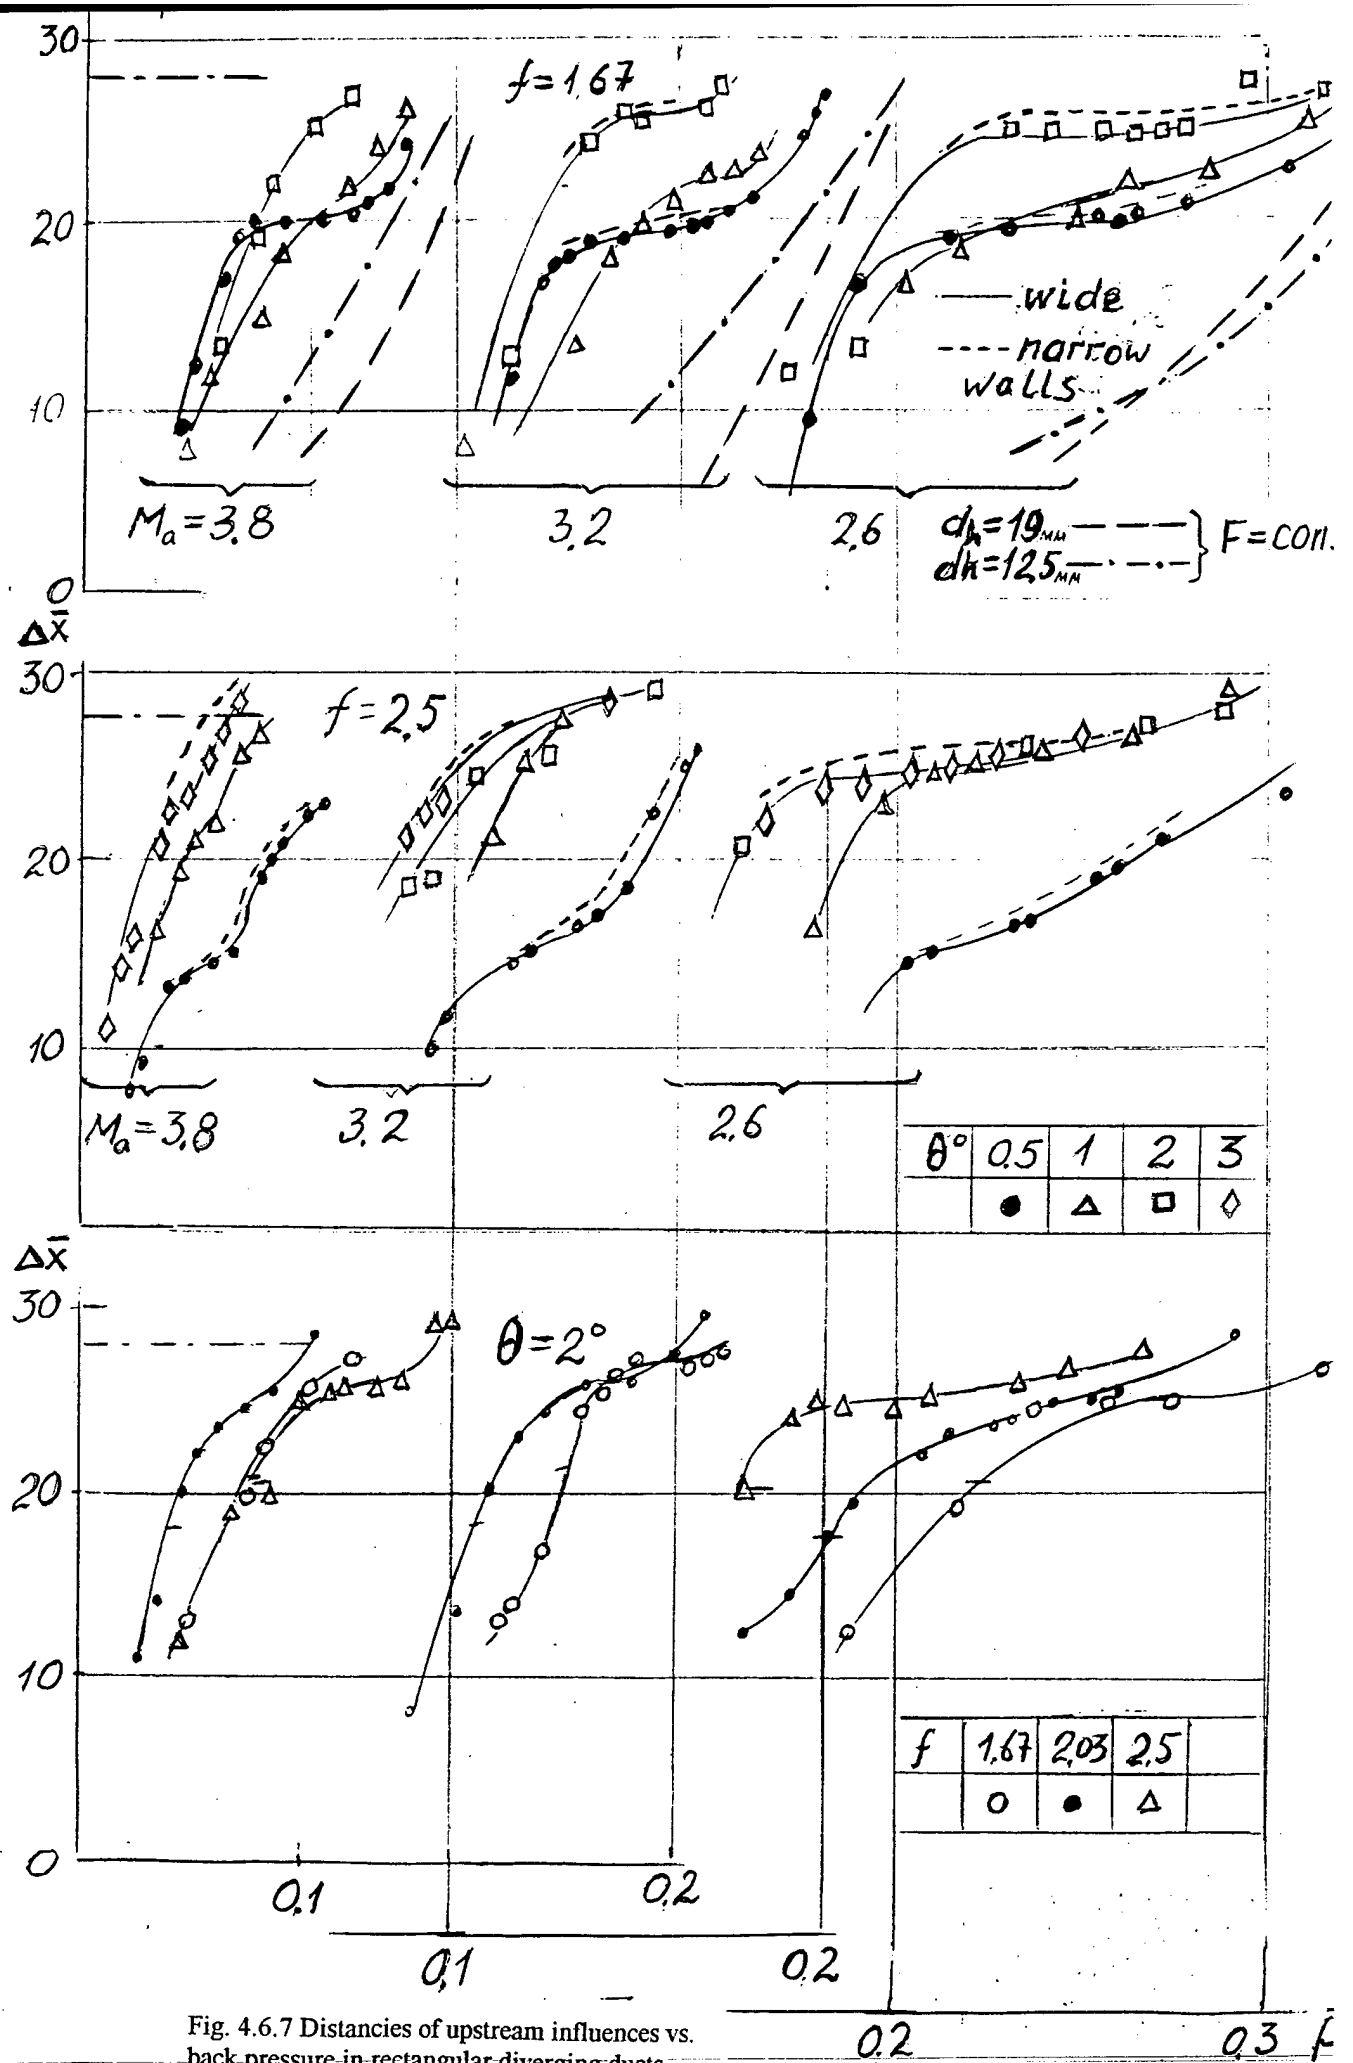 30
f=1.67
20
wide
narrow
walls
10
Ma=3.8 3.2 2.6
dk=19мм
dk=12,5мм
F=con.
0
Δx̄
30
f=2.5
20
10
Ma=3.8 3.2 2.6
θ° 0.5 1 2 3
Δx̄
30
θ=2°
20
10
f 1.67 2.03 2.5
0
0.1 0.2
0.1 0.2
0.2 0.3
Fig. 4.6.7 Distancies of upstream influences vs.
back pressure in rectangular diverging ducts